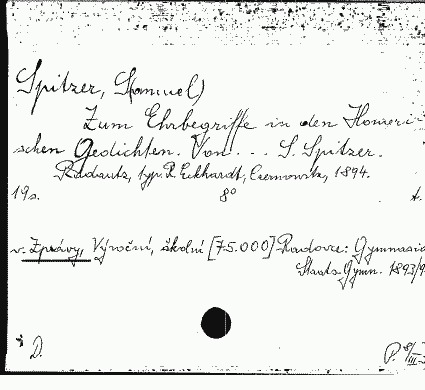 Spitzer, S(amuel)
Zum Ehrbegriffe in den Homeri-
schen Gedichten. Von... S. Spitzer.
Radautz, typ. R. Eckhardt, Czernowitz, 1894.
19 s. 8° t.
v. Zprávy, Výroční, školní [75.000] Radovce: Gymnasia
Staats Gymn. 1893/9
D. P. 8/III